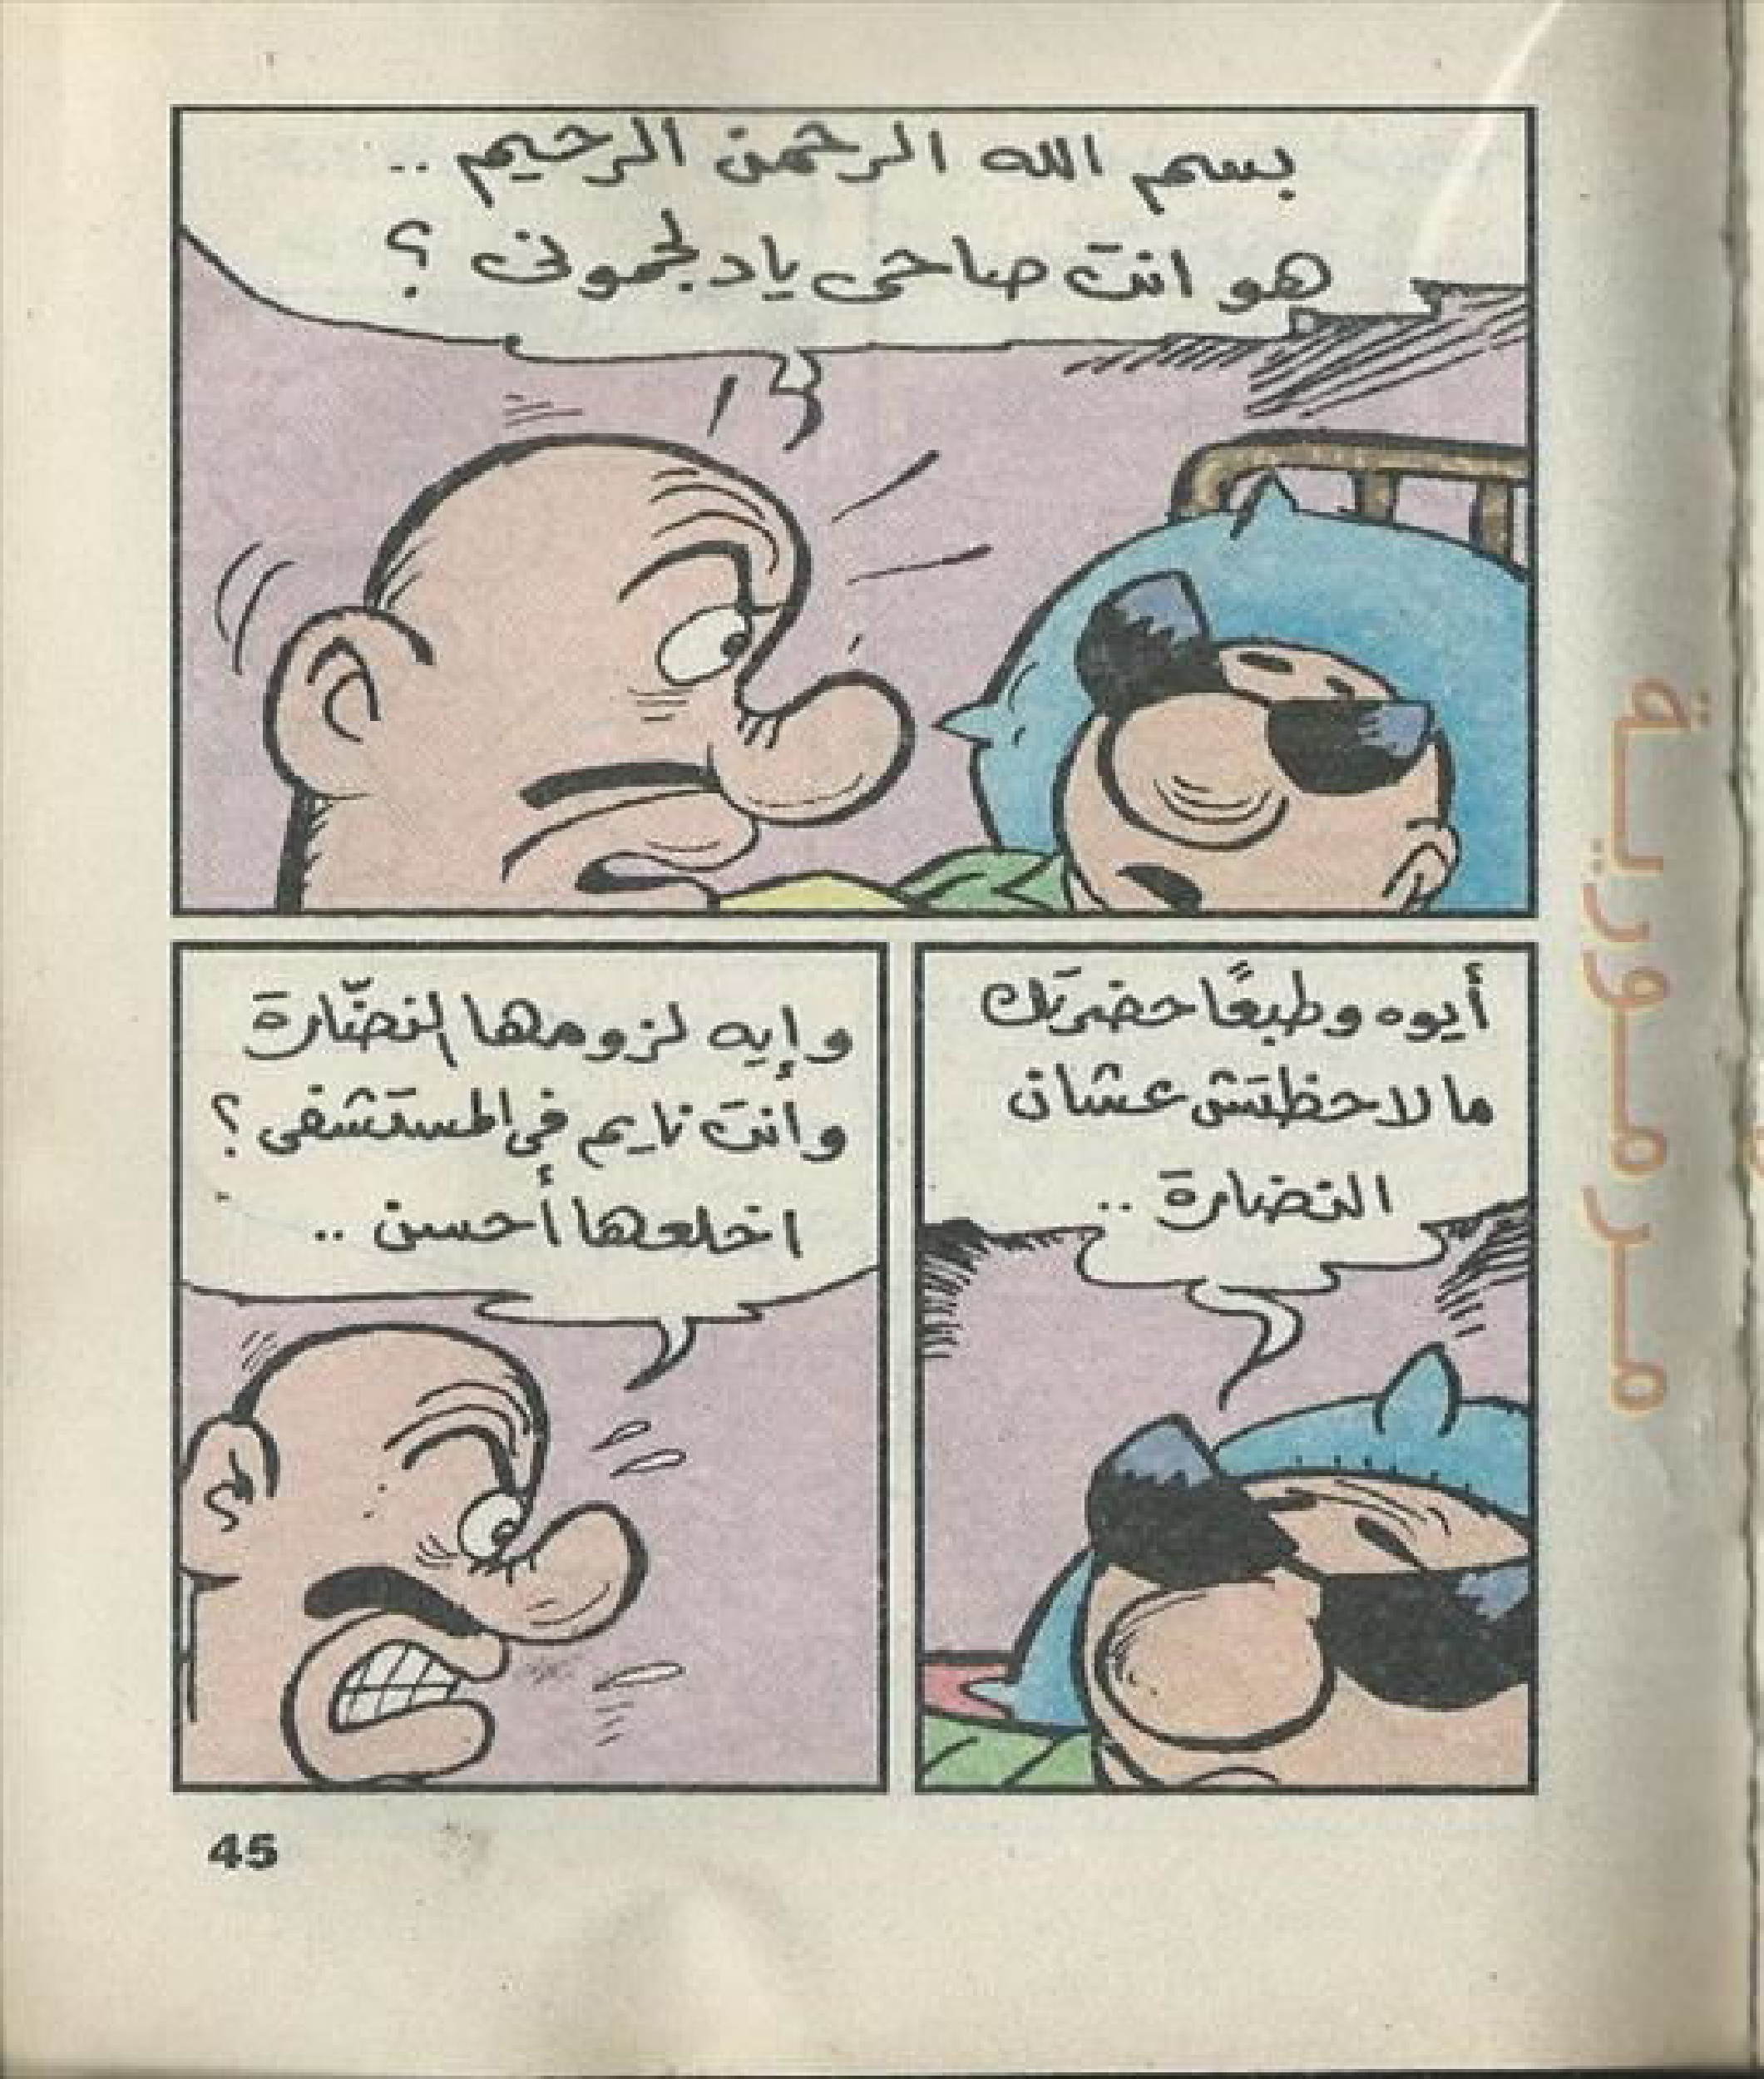 بسم الله الرحمن الرحيم ..
هو انت صاحى ياد لحمونى ؟
أيوه وطبعًا حضرتك
ما لاحظتش عشان
النضارة ..
وإيه لزومها النضّارة
وأنت نايم فى المستشفى ؟
اخلعها أحسن ..
45
مرمورية